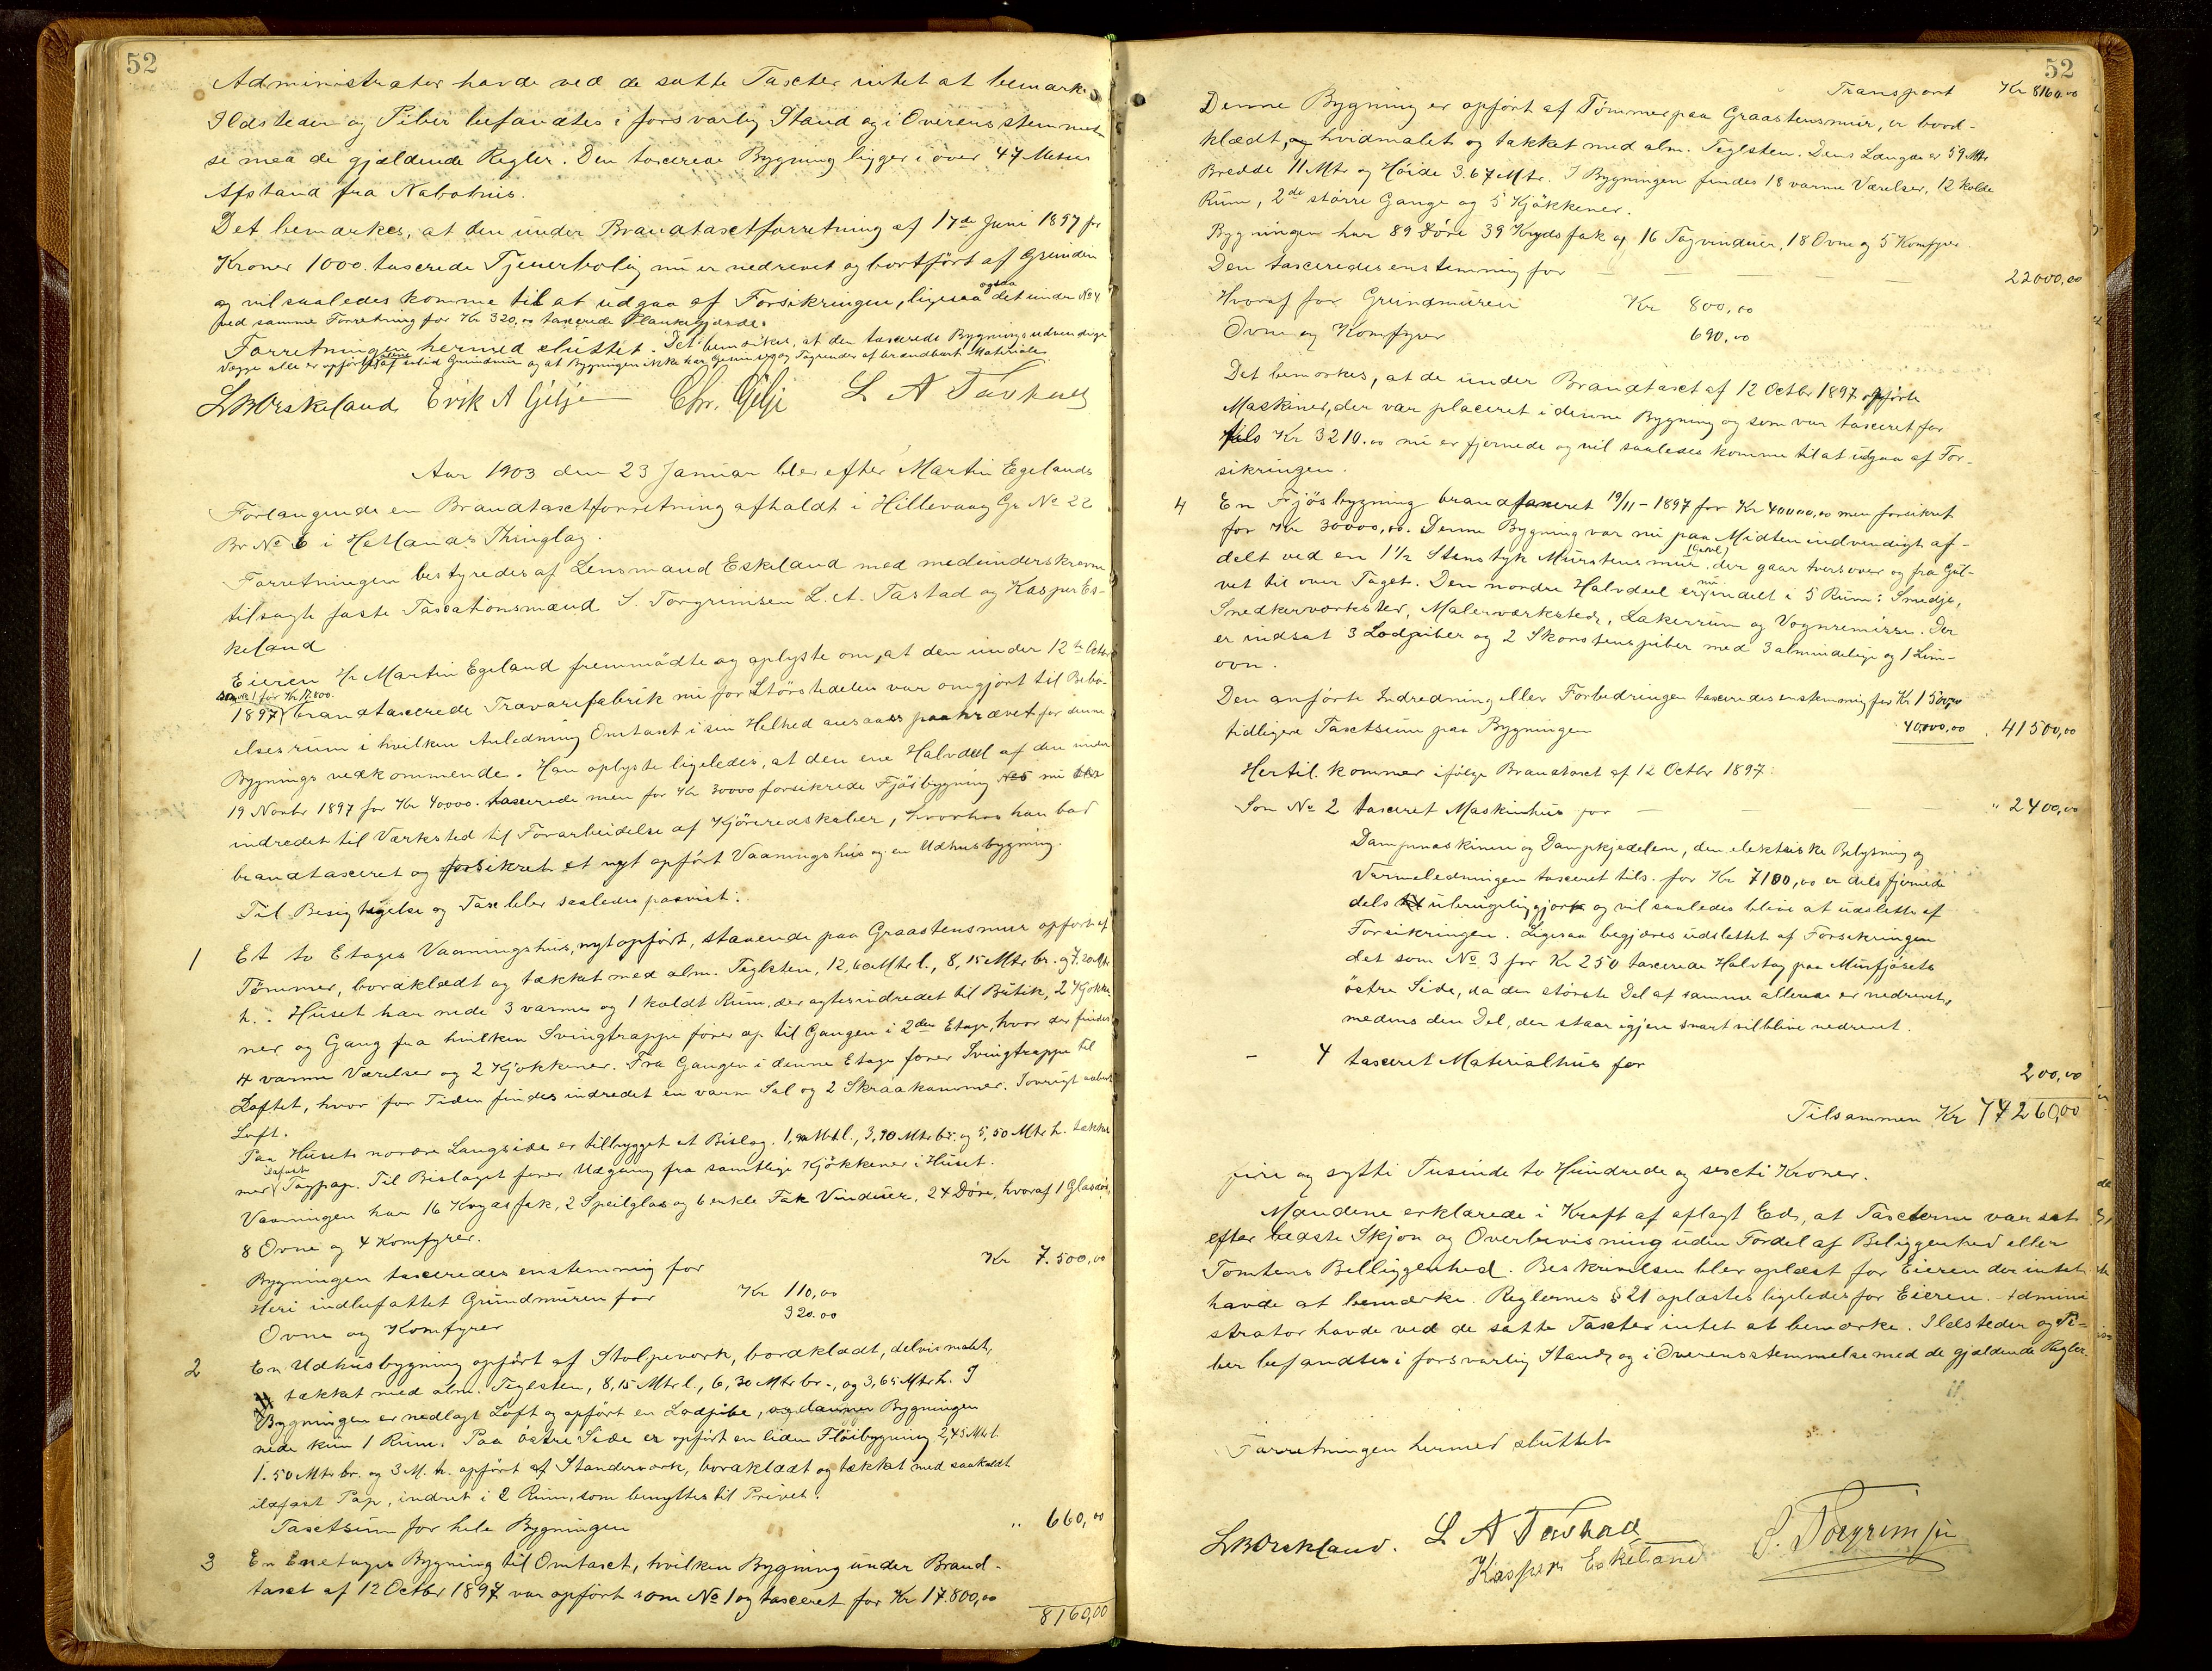 52
Administrator havde ved de satte Taxter intet at bemærke
Ildsteder og Piber befandtes i forsvarlig Stand og i Overensstemmel-
se med de gjældende Regler. Den taxerede Bygning ligger i over 47 Meters
Afstand fra Nabohus.
Det bemærkes, at den under Brandtaxtforretning af 17de Juni 1897 for
Kroner 1000. taxerede Tjenerbolig nu er nedrevet og bortført af Grunden
og vil saaledes komme til at udgaa af Forsikringen, ligesaa ogsaa det under No 4
ved samme Forretning for Kr 320.00 taxerede Plankegjærde.
Forretningen hermed sluttet. Det bemærkes, at den taxerede Bygnings udvendige
Vægge alle er opført af solid Grundmur og at Bygningen ikke har Gesimser og Tagrender af brændbart Materiale
LBØrskeland Erik A Gilje Chr. Gilje L A Tastad
Aar 1903 den 23 Januar blev efter Martin Egelands
Forlangende en Brandtaxtforretning afholdt i Hillevaag Gr No 22
Br No 6 i Hetlands Thinglag.
Forretningen bestyredes af Lensmand Eskeland med medunderskrevne
tilsagte faste Taxationsmænd S. Torgrimsen L. A. Tastad og Kasper Es-
keland
Eieren Hr Martin Egeland fremmødte og oplyste om, at den under 12te Octbr
som No 1 for Kr 17.800.
1897 brandtaxerede Trævarefabrik nu for Størstedelen var omgjort til Bebo-
elsesrum i hvilken Anledning Omtaxt i sin Helhed ansaaes paakrævet for denne
Bygnings vedkommende. Han oplyste ligeledes, at den ene Halvdel af den under
19 Novbr 1897 for Kr 40000. taxerede men for Kr 30000 forsikrede Fjøsbygning nu
indredet til Værksted til Forarbeidelse af Kjøreredskaber, hvorhos han bad
brandtaxeret og forsikret et nyt opført Vaaningshus og en Udhusbygning.
Til Besigtigelse og Taxt blev saaledes paavist:
1 Et to Etages Vaaningshus, nyt opført, staaende paa Graastensmur opført af
Tømmer, bordklædt og tækket med alm. Teglsten, 12,60 Mtr l., 8,15 Mtr br. og 7.20 Mtr
h. Huset har nede 3 varme og 1 koldt Rum, der agtes indredet til Butik, 2 Kjøkke-
ner og Gang fra hvilken Svingtrappe fører op til Gangen i 2den Etage, hvor der findes
4 varme Værelser og 2 Kjøkkener. Fra Gangen i denne Etage fører Svingtrappe til
Loftet, hvor for Tiden findes indredet en varm Sal og 2 Skraakammer. Iøvrigt aabent
Loft.
Paa Husets nordre Langside er tilbygget et Bislag. 1,90 Mtr l., 3,90 Mtr br. og 5,50 Mtr h. tækket
med ildfast Tagpap. Til Bislaget fører Udgang fra samtlige Kjøkkener i Huset.
Vaaningen har 16 Krydsfak, 2 Speilglas og 6 enkle Fak Vinduer, 24 Døre, hvoraf 1 Glasdør,
8 Ovne og 4 Komfyrer.
Bygningen taxeredes enstemmig for Kr 7.500,00
Heri indbefattet Grundmuren for Kr 110,00
Ovne og Komfyrer 320.00
2 En Udhusbygning opført af Stolpeværk, bordklædt, delvis malet,
tækket med alm. Teglsten, 8,15 Mtr l., 6,30 Mtr br., og 3,65 Mtr h. I
Bygningen er nedlagt Loft og opført en Lodpibe, og danner Bygningen
nede kun 1 Rum. Paa østre Side er opført en liden Fløibygning 2,45 Mtr l.
1.50 Mtr br. og 3 M. h. opført af Standerværk, bordklædt og tækket med saakaldt
ildfast Pap, indret i 2 Rum, som benyttes til Privet.
Taxtsum for hele Bygningen " 660,00
3 En Enetages Bygning til Omtaxt, hvilken Bygning under Brand-
taxt af 12 Octbr 1897 var opført som No 1 og taxeret for Kr 17.800,00
8160,00
52
Transport Kr 8160.00
Denne Bygning er opført af Tømmer paa Graastensmur, er bord-
klædt, og hvidmalet og tækket med alm. Teglsten. Dens Længde er 59 Mtr
Bredde 11 Mtr og Høide 3.67 Mtr. I Bygningen findes 18 varme Værelser, 12 kolde
Rum, 2de større Gange og 5 Kjøkkener.
Bygningen har 89 Døre 39 Krydsfak og 16 Tagvinduer, 18 Ovne og 5 Komfyrer
Den taxeredes enstemmig for 22000,00
Hvoraf for Grundmuren Kr 800,00
Ovne og Komfyrer 690,00
Det bemærkes, at de under Brandtaxt af 12 Octbr 1897 opførte
Maskiner, der var placeret i denne Bygning og som var taxeret for
tils Kr 3210.00 nu er fjernede og vil saaledes komme til at udgaa af For-
sikringen.
4 En Fjøsbygning brandtaxeret 19/11-1897 for Kr 40000,00 men forsikret
for Kr 30000,00. Denne Bygning var nu paa Midten indvendigt af-
delt ved en 1 1/2 Stens tyk Murstensmur, der gaar tversover og fra Gul-
vet til over Taget. Den nordre Halvdeel er nu indelt i 5 Rum: Smedje,
Snedkerværksted, Malerværksted, Lakerrum og Vognremisse. Der
er indsat 3 Lodpiber og 2 Skorstenspiber med 3 almindelige og 1 Lim-
ovn.
Den anførte Indredning eller Forbedringen taxeredes enstemmig for Kr 1500,00
tidligere Taxtsum paa Bygningen 40000,00 41500,00
Hertil kommer ifølge Brandtaxt af 12 Octbr 1897:
Som No 2 taxeret Maskinhus for " 2400,00
Dampmaskinen og Dampkjedelen, den elektriske Belysning og
Varmeledningen taxeret tils. for Kr 7100,00 er dels fjernede
dels ubrugeliggjort og vil saaledes blive at udslette af
Forsikringen. Ligesaa begjæres udslettet af Forsikringen
det som No 3 for Kr 250 taxerede Halvtag paa Murfjøsets
østre Side, da den største Del af samme allerede er nedrevet,
medens den Del, der staar igjen snart vil blive nedrevet.
- 4 taxeret Materialhus for 200,00
Tilsammen Kr 74260,00
fire og sytti Tusinde to Hundrede og sexti Kroner.
Mændene erklærede i Kraft af aflagt Ed, at Taxterne var sat
efter bedste Skjøn og Overbevisning uden Fordel af Beliggenhed eller
Tomtens Belliggenhed. Beskrivelsen blev oplæst for Eieren der intet
havde at bemærke. Reglernes § 21 oplæstes ligeledes for Eieren. Admini
strator havde ved de satte Taxter intet at bemærke. Ildsteder og Pi-
ber befandtes i forsvarlig Stand og i Overensstemmelse med de gjældende Regler.
Forretningen hermed sluttet
LBØrskeland. L A Tastad S. Torgrimsen
Kasper Eskeland